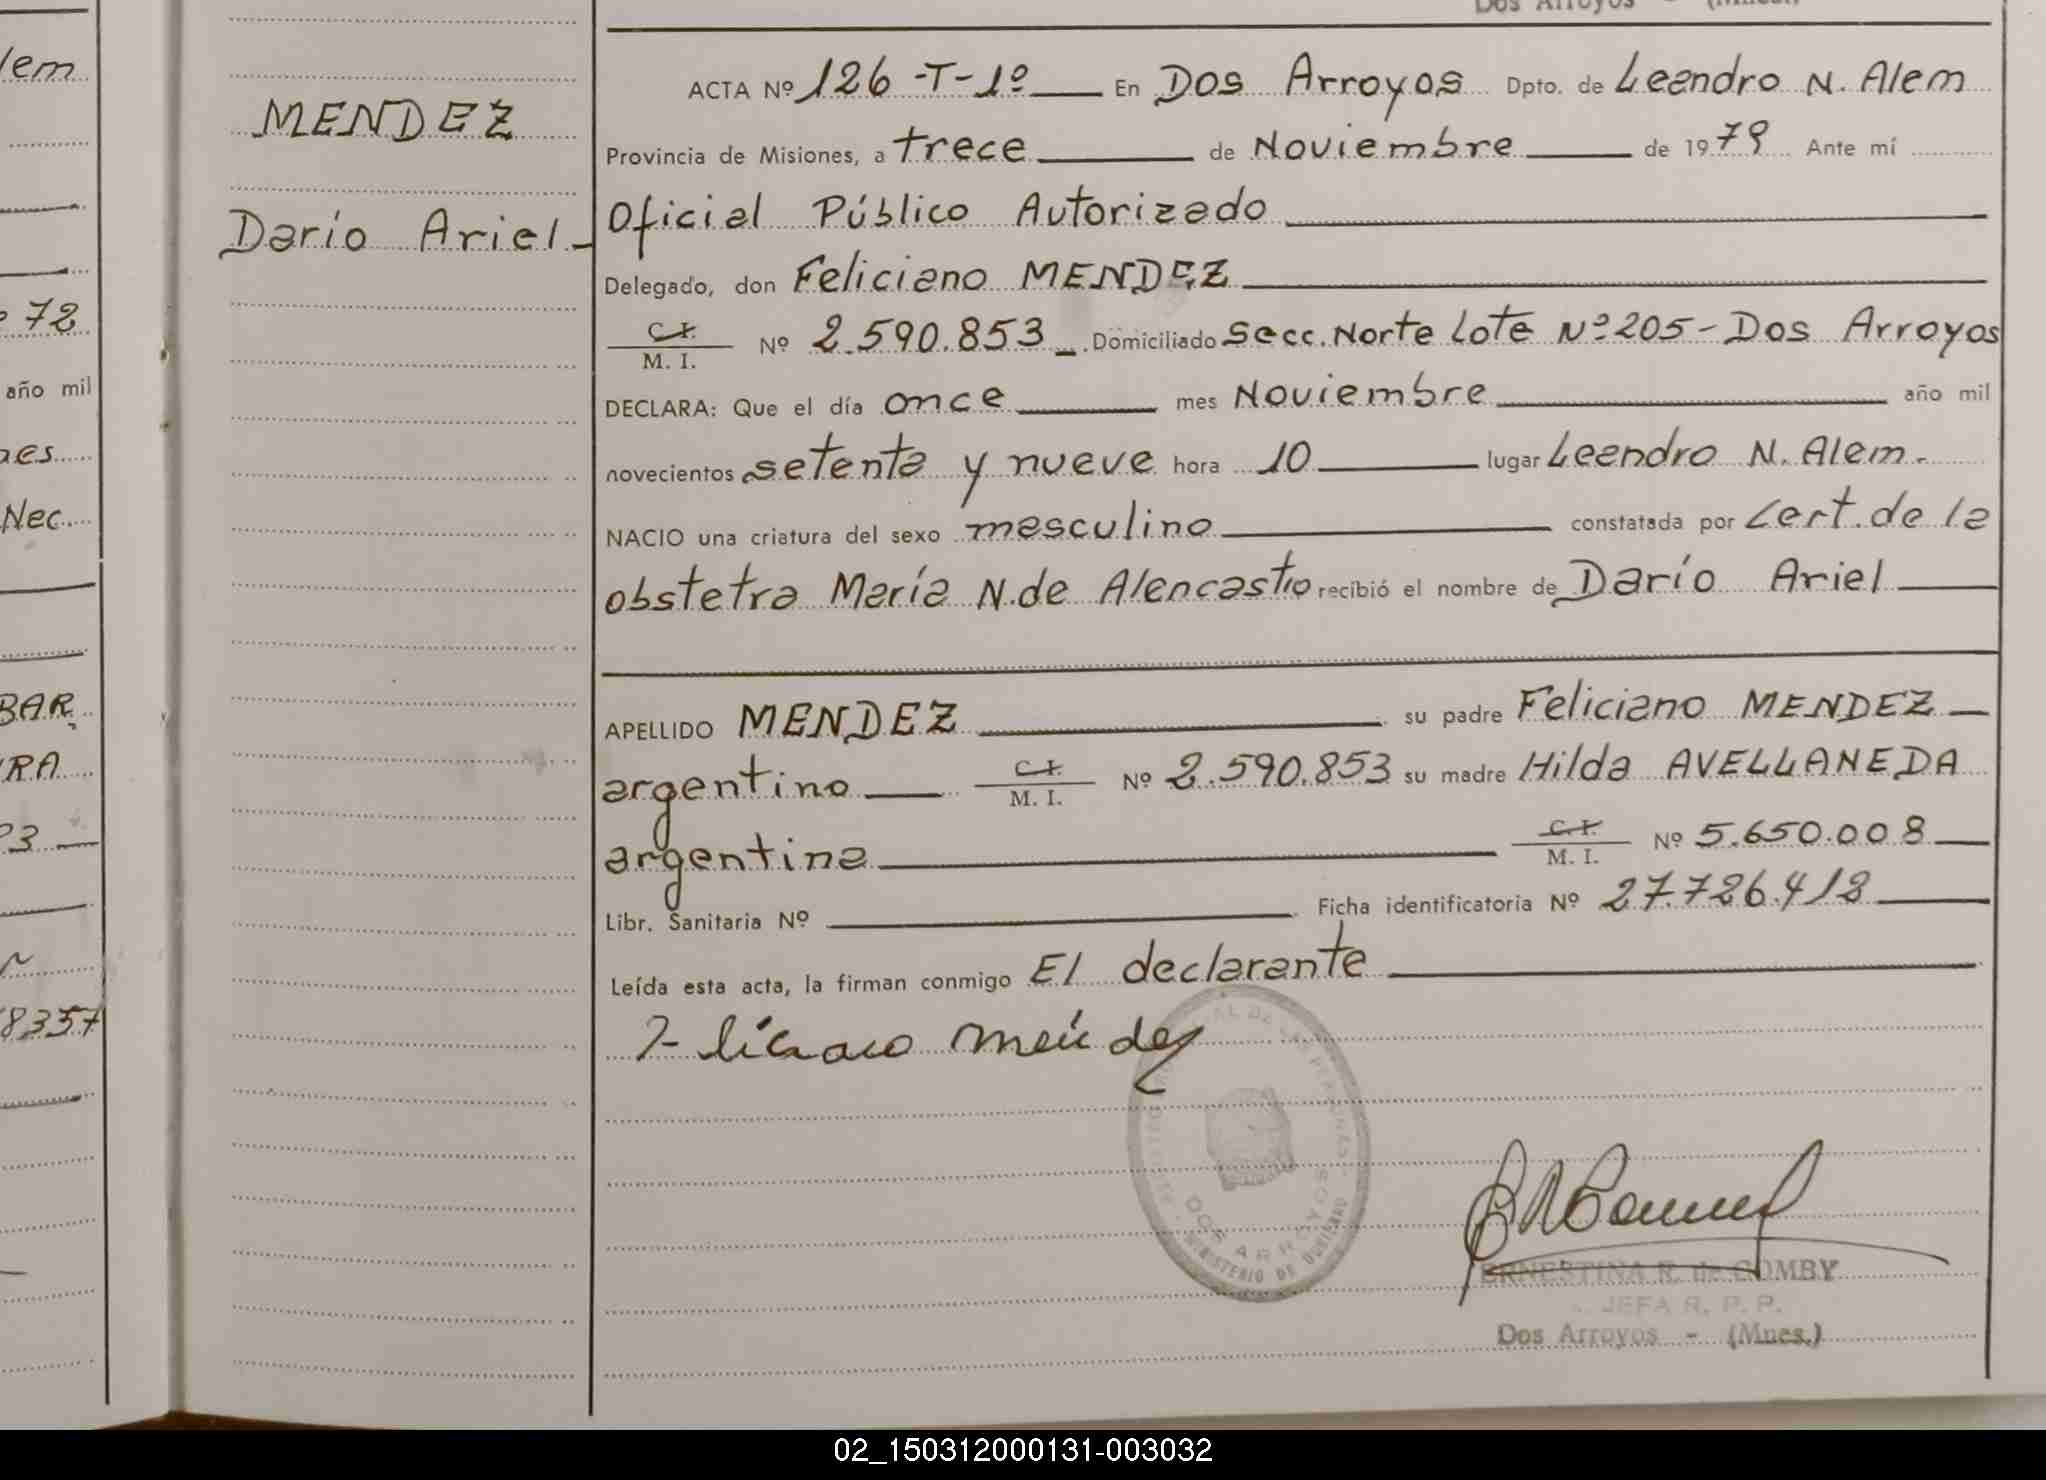 Dos Arroyos - (Mnes.)
lem
72
año mil
nes
Nec.
BAR
RA
3
8357
MENDEZ
Darío Ariel -
ACTA Nº 126 -T-1º En Dos Arroyos Dpto. de Leandro N. Alem
Provincia de Misiones, a trece de Noviembre de 1979 Ante mí
Oficial Público Autorizado
Delegado, don Feliciano MENDEZ
C.I.
M. I. Nº 2.590.853 Domiciliado Secc. Norte Lote Nº 205 - Dos Arroyos
DECLARA: Que el día once mes Noviembre año mil
novecientos setenta y nueve hora 10 lugar Leandro N. Alem.
NACIO una criatura del sexo masculino constatada por Cert. de la
obstetra María N. de Alencastro recibió el nombre de Darío Ariel
APELLIDO MENDEZ su padre Feliciano MENDEZ
argentino C.I. M. I. Nº 2.590.853 su madre Hilda AVELLANEDA
argentina C.I. M. I. Nº 5.650.008
Libr. Sanitaria Nº Ficha identificatoria Nº 27.726.412
Leída esta acta, la firman conmigo El declarante
Feliciano Méndez
DE LAS PERSONAS
DOS ARROYOS
MINISTERIO DE GOBIERNO
ERNESTINA R. de COMBY
JEFA R. P. P.
Dos Arroyos - (Mnes.)
02_150312000131-003032